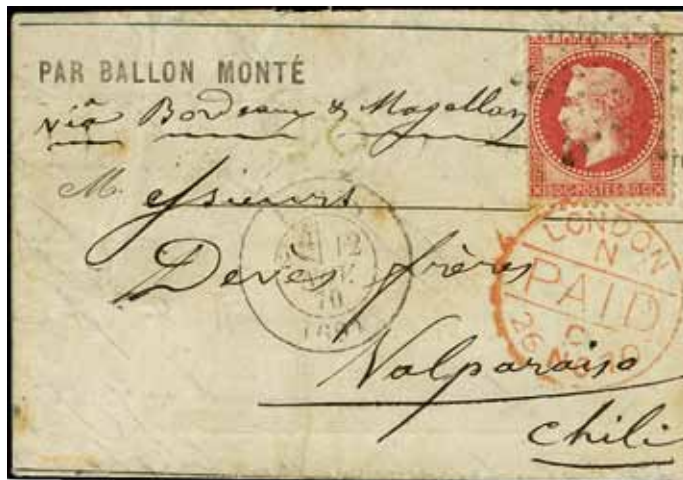 PAR BALLON MONTÉ
via Bordeaux & Magellan
Messieurs
Devès frères
Valparaiso
Chili
80C·POSTES·80C
LONDON
N
PAID
C
26 NO 70
12
70